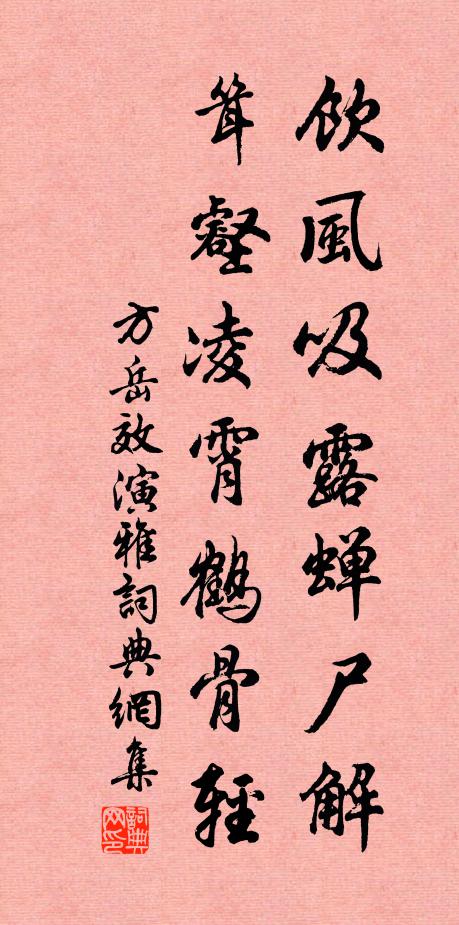 飲風吸露蟬尸解
耸壑凌霄鶴骨輕
方岳效演雅詞典網集
詞典网印